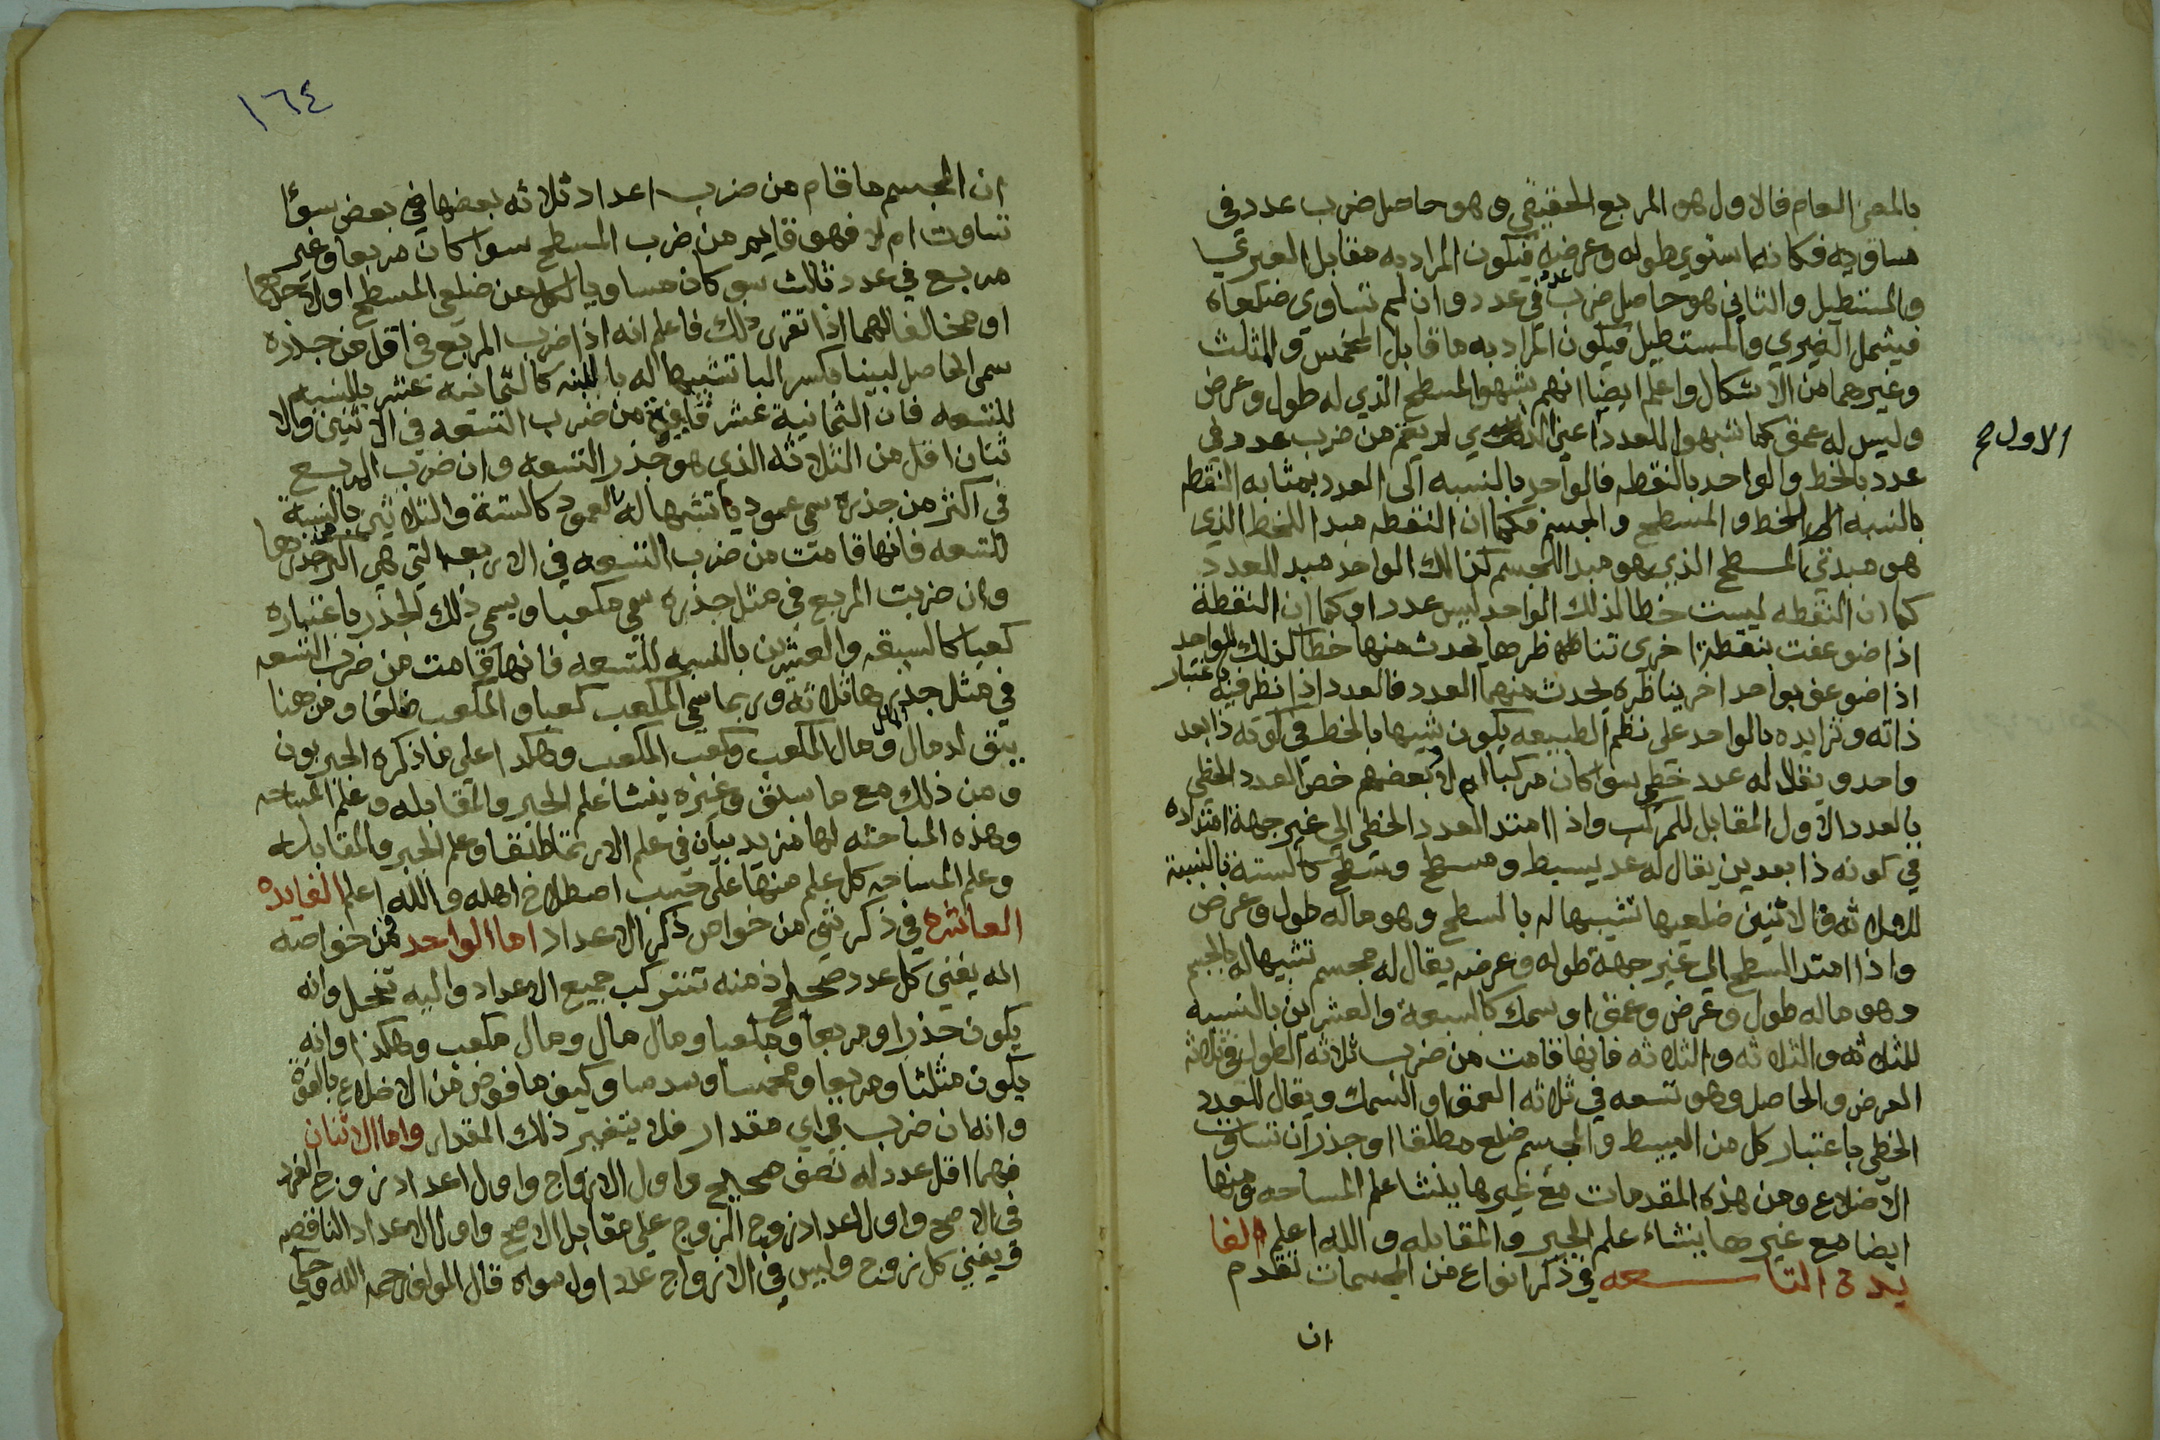 بالمعنى العام فالاول هو المربع الحقيقي وهو حاصل ضرب عدد في
مساويه فكانه ما ستوي طوله وعرضه فيكون المراد به مقابل الغيري
والمستطيل والثاني هو حاصل ضرب عدد في عدد وان لم تساوي ضلعاه
فيشمل الغيري والمستطيل فيكون المراد به ما قابل المخمس والمثلث
وغيرهما من الاشكال واعلم ايضا انهم شبهوا المسطح الذي له طول وعرض
وليس له عمق كما شبهوا العدد اعني الذي لم يقم من ضرب عدد في
الاول صح
عدد بالخط والواحد بالنقطه فالواحد بالنسبه الى العدد بمثابه النقطه
بالنسبه الى الخط والمسطح والمجسم فكما ان النقطه مبدا للخط الذي
هو مبدئ المسطح الذي هو مبدا المجسم كذالك الواحد مبد للعدد
كما ان النقطه ليست خطا لذلك الواحد ليس عددا وكما ان النقطة
اذا ضوعفت بنقطة اخرى تناظرها يحدث منها خطا كذلك الواحد
اذا ضوعف بواحد اخر يناظره يحدث منهما العدد فالعدد اذا نظر فيه باعتبار
ذاته وتزايده بالواحد على نظم الطبيعه يكون شبيها بالخط في كونه ذا بعد
واحد ويقال له عدد خطي سوا كان مركبا ام لا وبعضهم خص العدد الخطي
بالعدد الاول المقابل للمركب واذا امتد العدد الخطي الى غير جهة امتداده
في كونه ذا بعدين يقال له عد بسيط ومسطح وسطح كالستة بالنسبة
للثلاثه والاثنين ضلعيها تشبيها له بالسطح وهو ماله طول وعرض
واذا امتد السطح الى غير جهة طوله وعرضه يقال له مجسم تشبيها له بالجسم
وهو ماله طول وعرض وعمق او سمك كالسبعة والعشرين بالنسبه
للثلاثه والثلاثه والثلاثه فانها قامت من ضرب ثلاثه الطول في ثلاثه
العرض والحاصل وهو تسعه في ثلاثه العمق او السمك ويقال للعدد
الخطي باعتبار كل من البسيط والمجسم ضلع مطلقا او جذر ان تساوت
الاضلاع ومن هذه المقدمات مع غيرها ينشا علم المساحه ومنها
ايضا مع غيرها ينشاء علم الجبر والمقابله والله اعلم الفا
يدة التاسعه في ذكر انواع من المجسمات تقدم
ان
١٦٤
ان المجسم ما قام من ضرب اعداد ثلاثه بعضها في بعض سوأ
تساوت ام لا فهو قايم من ضرب المسطح سوا كان مربعا وغير
مربع في عدد ثالث سو كان مساويا لكل من ضلعي المسطح او لاحدهما
او مخالفا لهما اذا تقرر ذلك فاعلم انه اذا ضرب المربع في اقل من جذره
سمي الحاصل لبينا بكسر البا تشبيها له باللبنه كالثمانيه عشر بالنسبه
للتسعه فان الثمانية عشر قايمة من ضرب التسعه في الاثنين والا
ثنان اقل من الثلاثه الذي هو جذر التسعه وان ضرب المربع
في اكثر من جذره سمي عموديا تشبها له بالعمود كالستة والثلاثين بالنسبة
للتسعه فانها قامت من ضرب التسعه في الاربعه التي هي اكثر من جذرها
وان ضربت المربع في مثل جذره سمي مكعبا ويسمي ذلك الجذر باعتباره
كعبا كالسبعه والعشرين بالنسبه للتسعه فانها قامت من ضرب التسعه
في مثل جذرها ثلاثه وربما سمي المكعب كعبا والمكعب ضلعا ومن هنا
يتولد مال المال ومال المكعب وكعب المكعب وهكذا على ما ذكره الجبريون
ومن ذلك مع ما سبق وغيره ينشا علم الجبر والمقابله وعلم المساحه
وهذه المباحثه لها مزيد بيان في علم الارتماطيقا وعلم الجبر والمقابله
وعلم المساحه كل علم منها على حسب اصطلاح اهله والله اعلم الفايده
العاشره في ذكر شي من خواص ذكر الاعداد اما الواحد فمن خواصه
انه يفني كل عدد صحيح اذ منه تتركب جميع الاعداد واليه تنحل وانه
يكون جذرا ومربعا ومكعبا ومال مال ومال مكعب وهكذا وانه
يكون مثلثا ومربعا ومخمسا ومسدسا وكيف ما فوض من الاضلاع بالقوة
وانه ان ضرب في اي مقدار فلا يتغير ذلك المقدار واما الاثنان
فهما اقل عدد له نصف صحيح واول الازواج واول اعداد زوج الفرد
في الاصح واول اعداد زوج الزوج على مقابل الاصح واول الاعداد الناقصه
ويفني كل زوج وليس في الازواج عدد اول سواه قال المولف رحمه الله وحكي